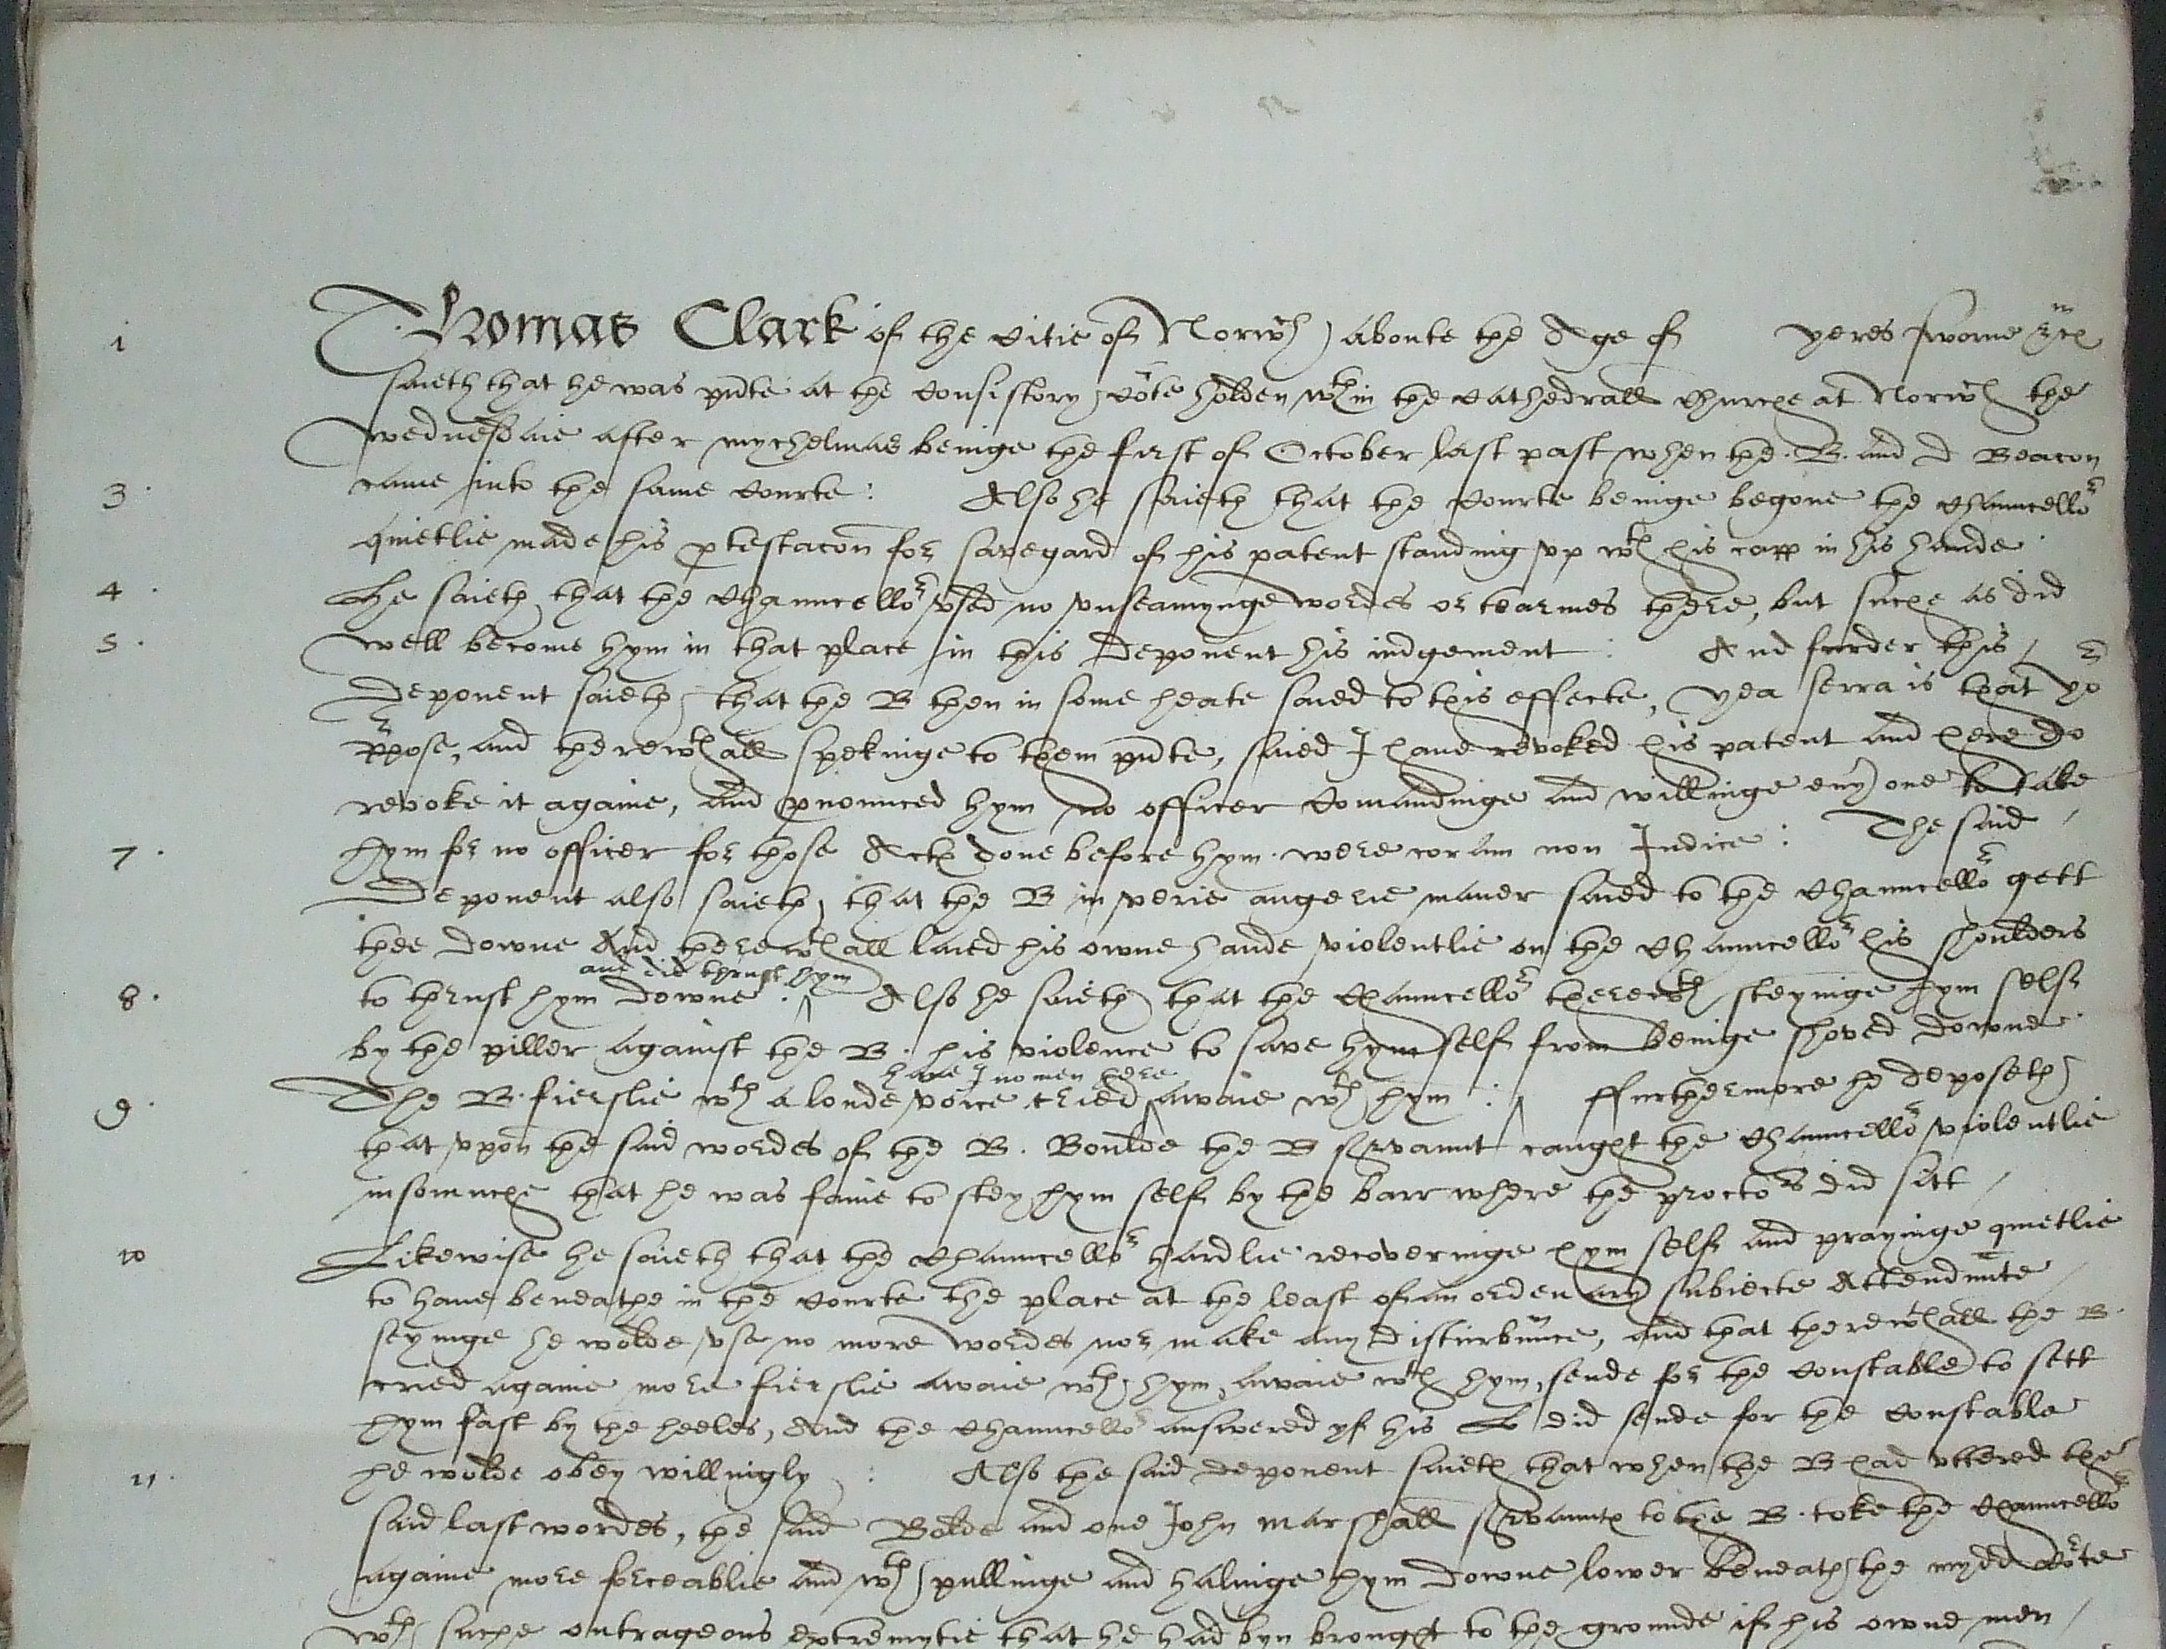 1 Thomas Clark of the Citie of Norwch aboute the Age of yeres sworne &c
saieth that he was pnte at the Consistory Corte holden wthin the Cathedrall Churche at Norwch the
wednesdaie after mychelmas beinge the first of October last past when the B. and D Beacon
3. came into the same Courte : Also he saieth that the Courte beinge begone the Chauncellor
quietlie made his ptestacon for savegard of his patent standing vp wth his capp in his hande
4. He saieth that the Chauncellor vsed no vnseamynge wordes or tearmes there, but suche as did
5. well become hym in that place in this Deponent his iudgement : And furder this
Deponent saieth that the B then in some heate saied to this effecte, yea serra is that yor
ppose, and therewthall spekinge to them pnte, saied I haue revoked his patent and here do
revoke it againe, and pnounced hym no officer Comandinge and willinge euy one to take
7. hym for no officer for those Actes done before hym were coram non Iudice : The said
Deponent also saieth, that the B in verie angerie maner saied to the Chauncellor gett
thee downe And therewthall laied his owne hande violentlie on the Chauncellor his shoulders
and did thrust hym
8. to thrust hym downe : ^ Also he saieth that the Chauncellor therewth steyinge hym self
by the piller against the B. his violence to save hym self from beinge shoved downe
haue I no men here
9. The B. fierslie wth a loude voice cried ^ awaie wth hym : ffurthermore he deposeth
that vpon the said wordes of the B. Boulde the B servaunt caught the Chauncellor violentlie
insomuche that he was faine to stey hym self by the barr where the proctors did sitt
10 Likewise he saieth that the Chauncellor hardlie recoveringe hym self and prayinge quietlie
to haue beneathe in the Courte the place at the least of an ordenary subiecte Attendnte
seyinge he wolde vse no more wordes nor make any disturbunce, and that therewthall the B.
cried againe more fierslie awaie wth hym, awaie wth hym, sende for the Constable to sett
hym fast by the heeles, And the Chauncellor answered yf his L did sende for the Constable
11. he wolde obey willingly : Also the said deponent saieth that when the B had vttered the
said last wordes, the said Bolde and one John Marshall servauntes to the B. toke the Chauncellor
againe more forceablie and wth pullinge and halinge hym downe lower beneath the mydd Corte
wth suche outrageous extremytie that he had byn brought to the grounde if his owne men